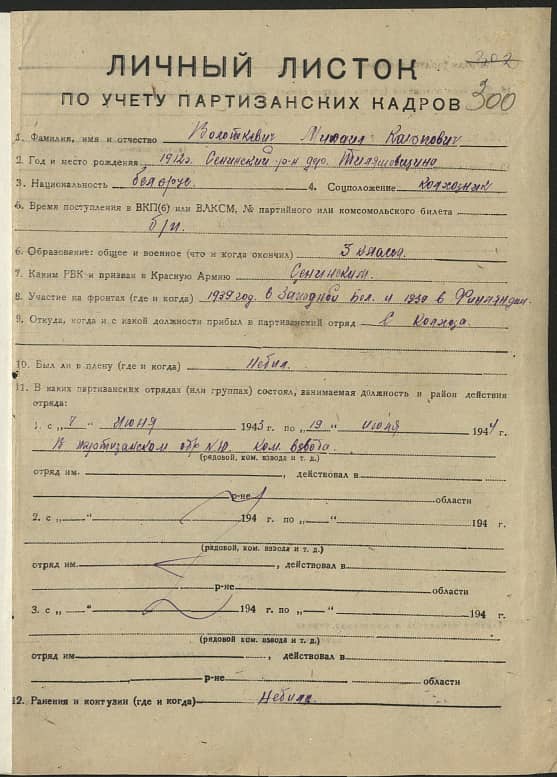 ЛИЧНЫЙ ЛИСТОК
ПО УЧЕТУ ПАРТИЗАНСКИХ КАДРОВ 300
1. Фамилия, имя и отчество Волоткевич Михаил
2. Год и место рождения 1912г. Сенинский р-н дер.
3. Национальность белорус. 4. Соцположение колхозник
5. Время поступления в ВКП(б) или ВЛКСМ, № партийного или комсомольского билета
б/п.
6. Образование: общее и военное (что и когда окончил) 3 класса
7. Каким РВК и призван в Красную Армию Сенинским.
8. Участие на фронтах (где и когда) 1939 год. в Западной Бел. и 1939 в Финляндии.
9. Откуда, когда и с какой должности прибыл в партизанский отряд С Колхоза
10. Был ли в плену (где и когда) Небыл.
11. В каких партизанских отрядах (или группах) состоял, занимаемая должность и район действия
отряда:
1. с „7“ Июня 1943 г. по „19“ Июня 1944 г.
В партизанском отр №10. Ком. взвода.
(рядовой, ком. взвода и т. д.)
отряд им. , действовал в
р-не области
2. с „ “ 194 г. по „ “ 194 г.
(рядовой, ком. взвода и т. д.)
отряд им. , действовал в
р-не области
3. с „ “ 194 г. по „ “ 194 г.
(рядовой, ком. взвода и т. д.)
отряд им. , действовал в
р-не области
12. Ранения и контузии (где и когда) Небыло.